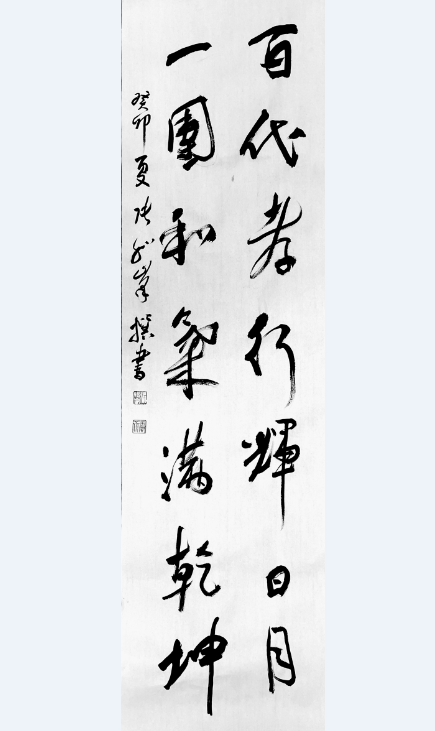 百代孝行輝日月
一團和氣滿乾坤
癸卯夏张兆峯撰书